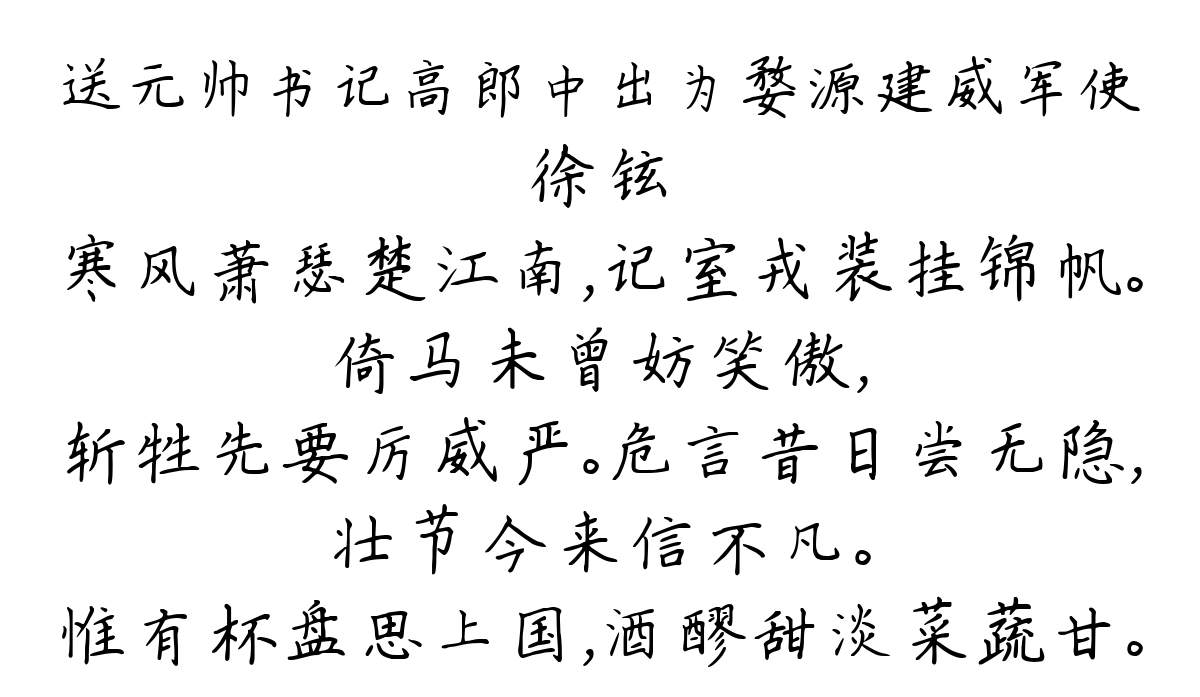 送元帅书记高郎中出为婺源建威军使
徐铉
寒风萧瑟楚江南,记室戎装挂锦帆。
倚马未曾妨笑傲,
斩牲先要厉威严。危言昔日尝无隐,
壮节今来信不凡。
惟有杯盘思上国,酒醪甜淡菜蔬甘。